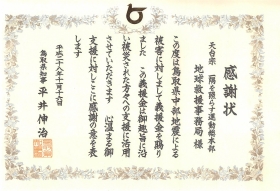 感謝状
天台宗 一隅を照らす運動総本部
地球救援事務局様
この度は鳥取県中部地震による
被害に対しまして義援金を賜り
ました この義援金は御趣旨に沿
い被災された方々への支援に活用
させていただきます 心温まる御
支援に対しここに感謝の意を表
します
平成二十八年十二月十六日
鳥取県知事 平井伸治